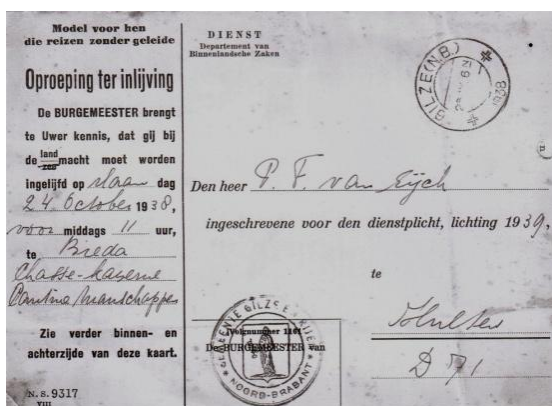 Model voor hen
die reizen zonder geleide
Oproeping ter inlijving
De BURGEMEESTER brengt
te Uwer kennis, dat gij bij
de land macht moet worden
zee
ingelijfd op Maan dag
24 October 1938,
voor middags 11 uur,
te Breda
Chassé-kazerne
Cantine Manschappen
Zie verder binnen- en
achterzijde van deze kaart.
N.S. 9317
XIII
DIENST
Departement van
Binnenlandsche Zaken
GILZE (N.B.)
1938
Den heer P. F. van Eijch
ingeschrevene voor den dienstplicht, lichting 1939,
te
Hulten
D 71
De BURGEMEESTER van
GEMEENTE GILZE E RIJEN
NOORD-BRABANT